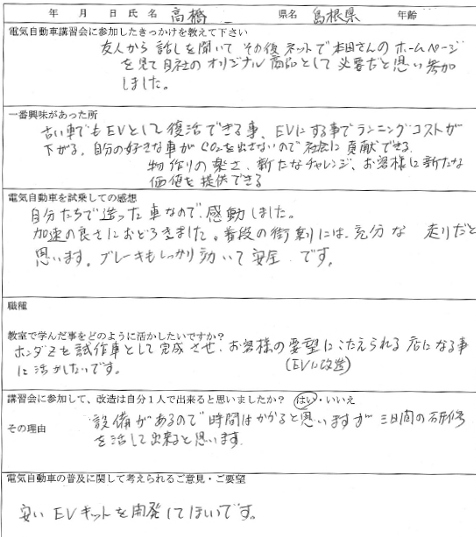 年 月 日 氏名 高橋 県名 島根県 年齢
電気自動車講習会に参加したきっかけを教えて下さい
友人から話しを聞いて その後ネットで本田さんのホームページ
を見て自社のオリジナル商品として必要だと思い参加
しました。
一番興味があった所
古い車でもEVとして復活できる事、EVにする事でランニングコストが
下がる。自分の好きな車がCO₂を出さないので社会に貢献できる
物作りの楽さ、新たなチャレンジ、お客様に新たな
価値を提供できる
電気自動車を試乗しての感想
自分たちで造った車なので、感動しました。
加速の良さにおどろきました。普段の街乗りには、充分な 走りだと
思います。ブレーキもしっかり効いて安全 です。
職種
教室で学んだ事をどのように活かしたいですか?
ホンダZを試作車として完成させ、お客様の要望にこたえられる店になる事
に活かしたいです。 (EVに改造)
講習会に参加して、改造は自分1人で出来ると思いましたか? はい・いいえ
その理由 設備があるので時間はかかると思いますが 三日間の研修
を活して出来ると思います。
電気自動車の普及に関して考えられるご意見・ご要望
安いEVキットを開発してほしいです。